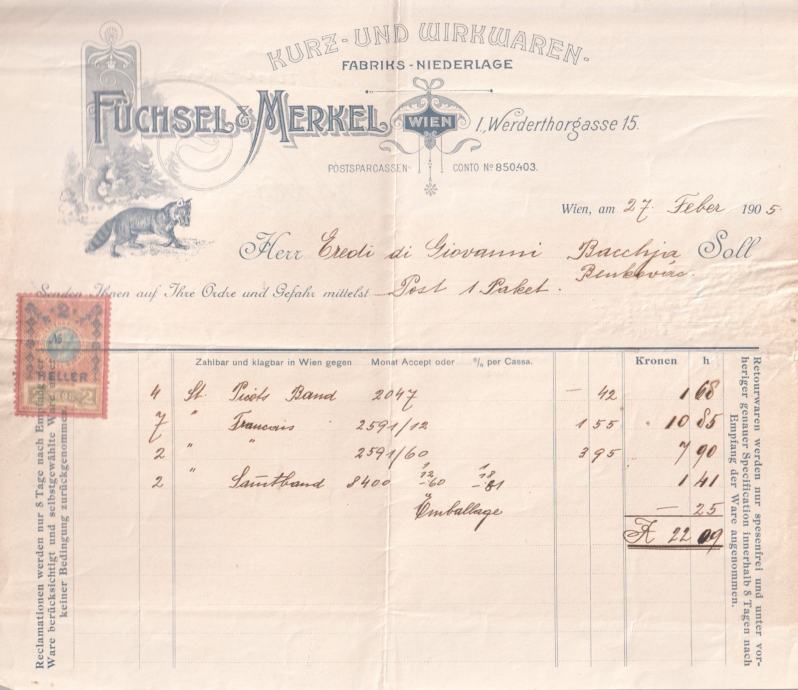 KURZ- UND WIRKWAREN-
FABRIKS-NIEDERLAGE
FÜCHSEL & MERKEL WIEN I., Werderthorgasse 15.
POSTSPARCASSEN- CONTO No 850.403.
Wien, am 27. Feber 1905.
Herr Eredi di Giovanni Bacchja Soll
Benkovác.
Senden Ihnen auf Ihre Ordre und Gefahr mittelst Post 1 Paket.
2
HELLER
2
Zahlbar und klagbar in Wien gegen Monat Accept oder % per Cassa. Kronen h
4 St. Picots Band 2047 — 42 1 68
7 " Francais 2591/12 1 55 10 85
2 " " 2591/60 3 95 7 90
2 " Samtband 8400 1/12 —60 1/18 —81 1 41
Emballage — 25
K 22 09
Reclamationen werden nur 8 Tage nach Empfang der
Ware berücksichtigt und selbstgewählte Ware unter
keiner Bedingung zurückgenommen.
Retourwaren werden nur spesenfrei und unter vor-
heriger genauer Specification innerhalb 8 Tagen nach
Empfang der Ware angenommen.